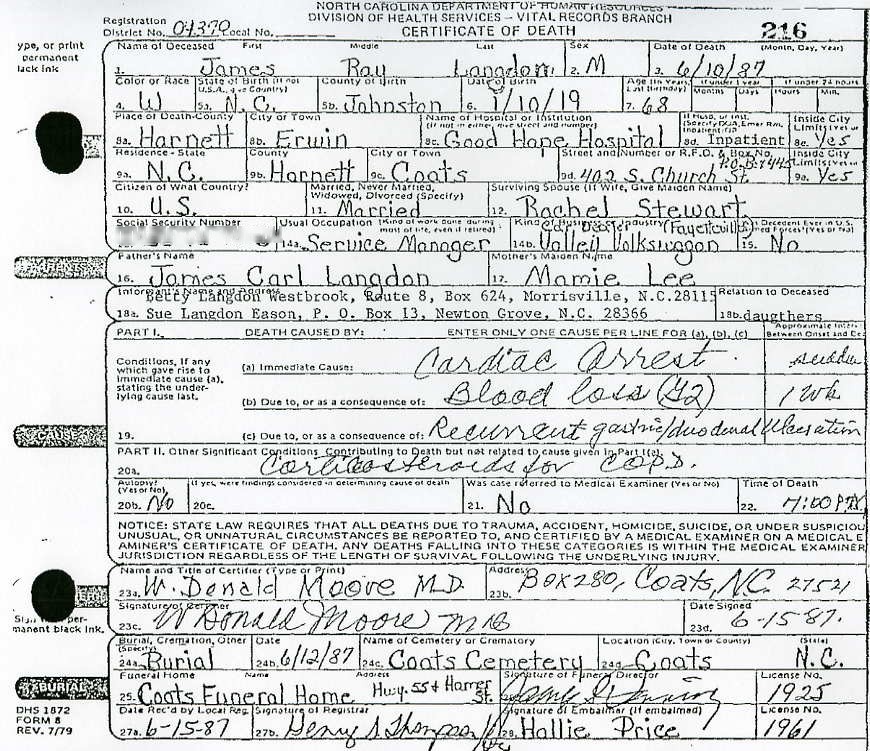 NORTH CAROLINA DEPARTMENT OF HUMAN RESOURCES
DIVISION OF HEALTH SERVICES – VITAL RECORDS BRANCH
CERTIFICATE OF DEATH
216
Registration
District No. 04379 Local No.
ype, or print
permanent
lack ink
Name of Deceased First Middle Last Sex Date of Death (Month, Day, Year)
1. James Ray Langdon 2. M 3. 6/10/87
Color or Race State of Birth (If not U.S.A., give Country) County of Birth Date of Birth Age (In Years Last Birthday) If under 1 year Months Days If under 24 hours Hours Min.
4. W 5a. N.C. 5b. Johnston 6. 1/10/19 7. 68
Place of Death-County City or Town Name of Hospital or Institution (If not in either, give street and number) If Hosp. or Inst. Inside City Limits
8a. Harnett 8b. Erwin 8c. Good Hope Hospital 8d. Inpatient 8e. Yes
Residence - State County City or Town Street and Number or R.F.D. & Box No. Inside City Limits
P.O. Box 445
9a. N.C. 9b. Harnett 9c. Coats 9d. 402 S. Church St. 9a. Yes
Citizen of What Country? Married, Never Married, Widowed, Divorced (Specify) Surviving Spouse (If Wife, Give Maiden Name)
10. U.S. 11. Married 12. Rachel Stewart
Social Security Number Usual Occupation (Kind of work done during most of life, even if retired) Kind of Business or Industry (Fayetteville) Decedent Ever in U.S. Armed Forces? (Yes or No)
14a. Service Manager 14b. Valley Volkswagon 15. No
Father's Name Mother's Maiden Name
16. James Carl Langdon 17. Mamie Lee
Informant's Name and Address Relation to Deceased
Betty Langdon Westbrook, Route 8, Box 624, Morrisville, N.C.28115
18a. Sue Langdon Eason, P. O. Box 13, Newton Grove, N.C. 28366 18b. daugthers
PART I. DEATH CAUSED BY: ENTER ONLY ONE CAUSE PER LINE FOR (a), (b), (c) Approximate Between Onset and
Conditions, if any
which gave rise to
immediate cause (a),
stating the under-
lying cause last.
(a) Immediate Cause: Cardiac arrest
(b) Due to, or as a consequence of: Blood loss 1 wk
19. (c) Due to, or as a consequence of: Recurrent gastric/duodenal Ulceration
CAUSE
PART II. Other Significant Conditions Contributing to Death but not related to cause given in Part I(a).
20a. Corticosteroids for COPD.
Autopsy? (Yes or No) If yes, were findings considered in determining cause of death Was case referred to Medical Examiner (Yes or No) Time of Death
20b. No 20c. 21. No 22. 7:00 P
NOTICE: STATE LAW REQUIRES THAT ALL DEATHS DUE TO TRAUMA, ACCIDENT, HOMICIDE, SUICIDE, OR UNDER SUSPICIOU
UNUSUAL, OR UNNATURAL CIRCUMSTANCES BE REPORTED TO, AND CERTIFIED BY A MEDICAL EXAMINER ON A MEDICAL E
AMINER'S CERTIFICATE OF DEATH. ANY DEATHS FALLING INTO THESE CATEGORIES IS WITHIN THE MEDICAL EXAMINER
JURISDICTION REGARDLESS OF THE LENGTH OF SURVIVAL FOLLOWING THE UNDERLYING INJURY.
Name and Title of Certifier (Type or Print) Address
23a. W. Donald Moore M.D. 23b. Box 280, Coats, NC 27521
Signature of Certifier Date Signed
23c. W Donald Moore MD 23d. 6-15-87.
manent black ink.
Burial, Cremation, Other (Specify) Date Name of Cemetery or Crematory Location (City, Town or County) (State)
24a. Burial 24b. 6/12/87 24c. Coats Cemetery 24d. Coats N.C.
BURIAL
Funeral Home Name Address Signature of Funeral Director License No.
25. Coats Funeral Home Hwy. 55 & Harner St. 1925
DHS 1872
FORM 8
REV. 7/79
Date Rec'd by Local Reg. Signature of Registrar Signature of Embalmer (If embalmed) License No.
27a. 6-15-87 27b. Henry S Thompson 28. Hallie Price 1961